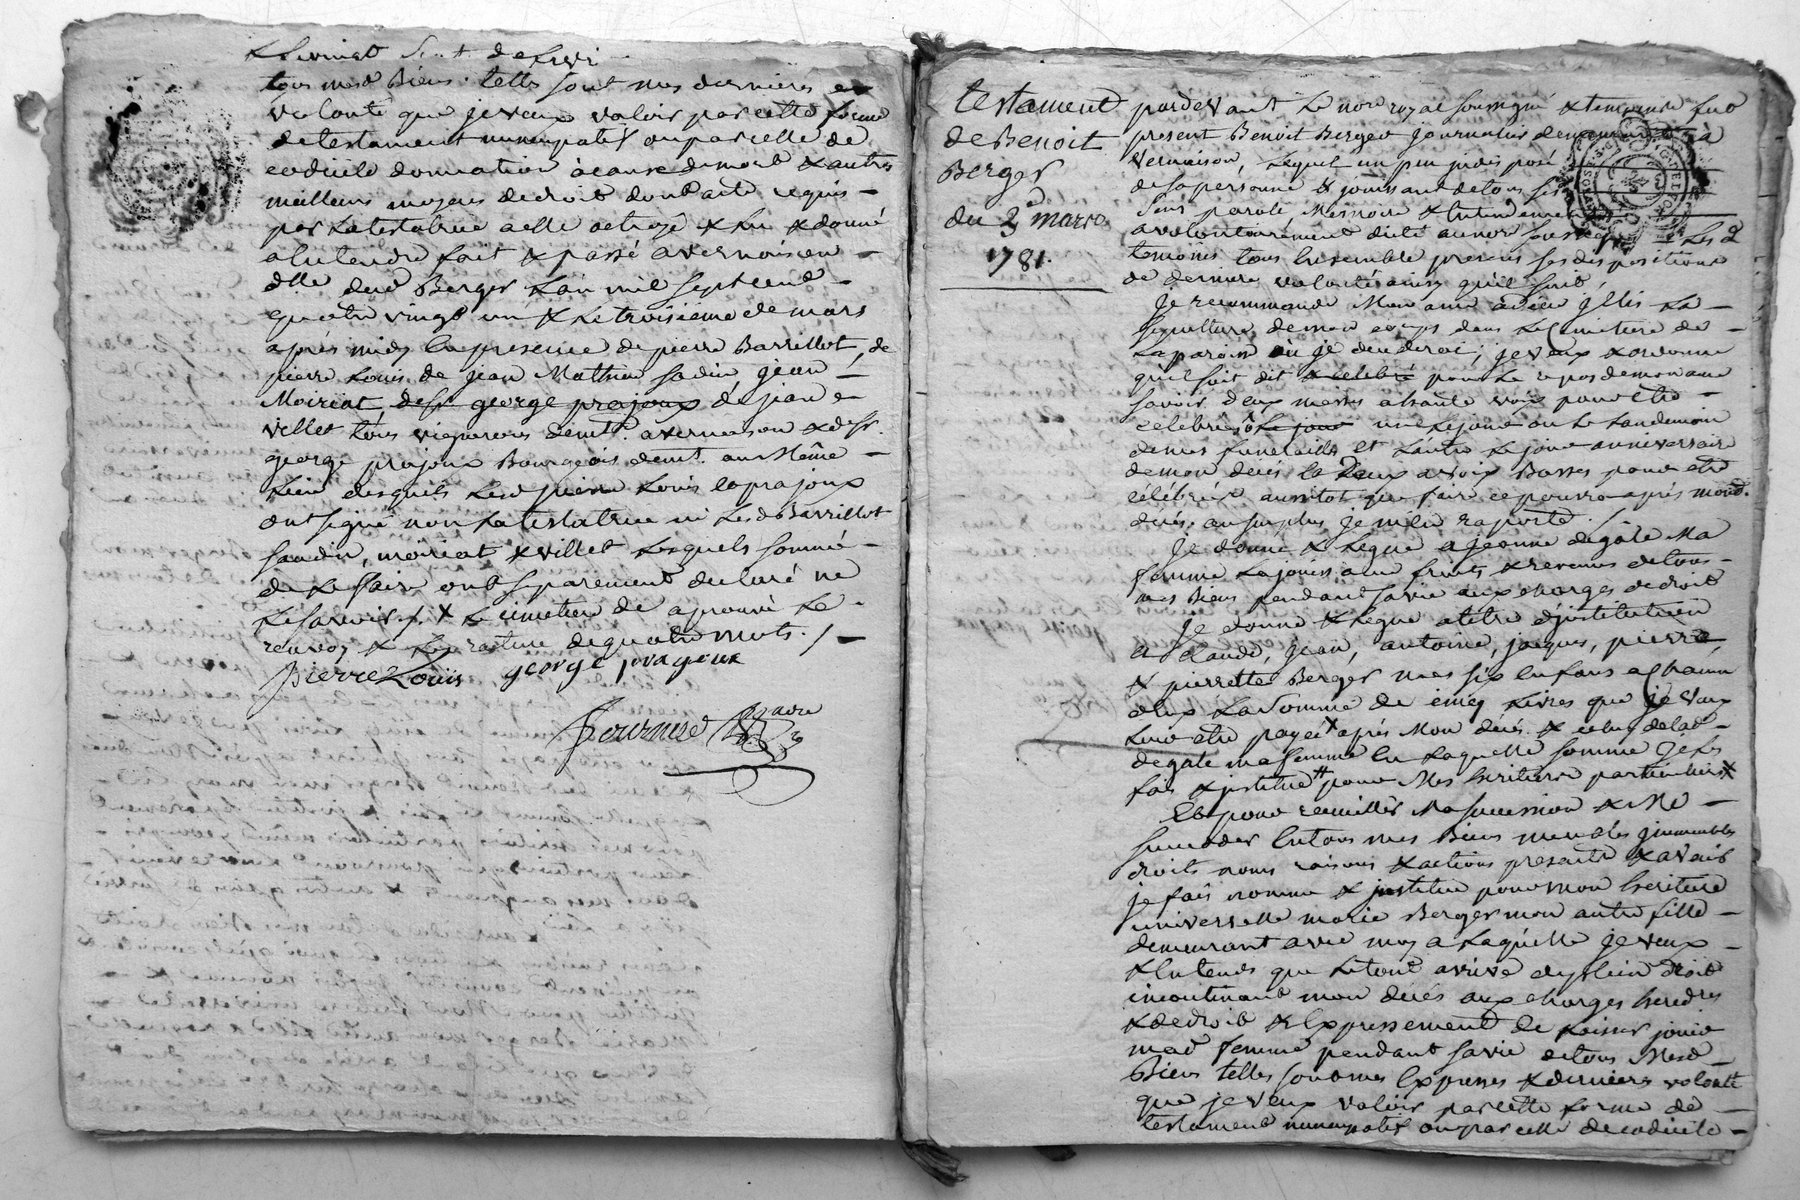 tous mesd Biens. telles sont mes dernieres
volonté que je veux valoir par cette forme
de testament nuncupatif ou par celle de
codicile donnation a cause de mort & autres
meilleurs moyens de droit dont acte requis
par la testatrice a elle octroyé & lu & donné
a entendre fait & passé a vernaison
dlle dud Berger L'an mil sept cent
quatre vingt un & Le troisieme de mars
après midy En presence de pierre Barrillot, de
pierre Louis, de jean Mathieu sadin jean
Moiriat, de sr george prajoux de jean
villet tous vignerons demt. a vernaison & de sr.
george prajoux Bourgeois demt. au Même
Lieu desquels Lesd pierre Louis & prajoux
ont signé non La testatrice ni Lesd Barrillot
sandin, moiriat & villet Lesquels sommé
de Le faire ont separement declaré ne
Le savoir /. x Le cimetiere de aprouvé Le
renvoy & La rature de quatre mots. /.
pierre Louis george prajoux
testament
de Benoit
Berger
du 3 mars
1781.
pardevant Le nore royal soussigné & temoins fut
present Benoit Berger journalier demeurant a
vernaison, Lequel un peu indisposé
de sa personne & jouissant de tous ses
sens parole, Memoire & Entendement
a volontairement dicté au nore soussigné Les
temoins tous Ensemble presens ses dispositions
de derniere volonté ainsy qu'il suit,
Je recommande Mon ame a dieu j'Elis La
sepulture de mon corps dans Le Cimetiere de
La paroisse où je decederai; je veux & ordonne
qu'il soit dit & celebré pour Le repos de mon ame
savoir deux messes a haute voix pour être
celebrées Le jour une Le jour ou Le Landemain
de mes funerailles et L'autre Le jour anniversaire
de mon décés & deux a voix Basses pour etre
célébrées aussitot que faire ce pourra après mond.
décés. au surplus je m'en raporte.
Je donne & Legue a jeanne degale Ma
femme La jouissance fruits & revenus de tous
mes Biens pendant sa vie aux charges de droit
Je donne & Legue a titre d'jnstitution
a Claude, jean, antoine, jacques, pierre,
& pierrette Berger mes six Enfans a Chacun
d'Eux La somme de cinq Livres que je veux
Leur etre payée x après Mon décés & celuy de lad
degale ma femme En Laquelle somme je Les
fais & jnstitue pour Mes heritiers particuliers x
Et pour recueillir Ma succession & Me
succeder En tous mes Biens meubles jmmeubles
droits noms raisons & actions presents & avenir
je fais nomme & jnstitue pour mon heritiere
universelle marie Berger mon autre fille
demeurant avec moy a Laquelle je veux
& Entends que Le tout arrive de plein droit
incontinent mon décés aux charges heredres
& de droit & Expressement de Laisser jouir
mad femme pendant sa vie de tous Mesd
Biens telles sont mes Expresses & dernieres volonté
que je veux valoir par cette forme de
testament nuncupatif ou par celle de codicile